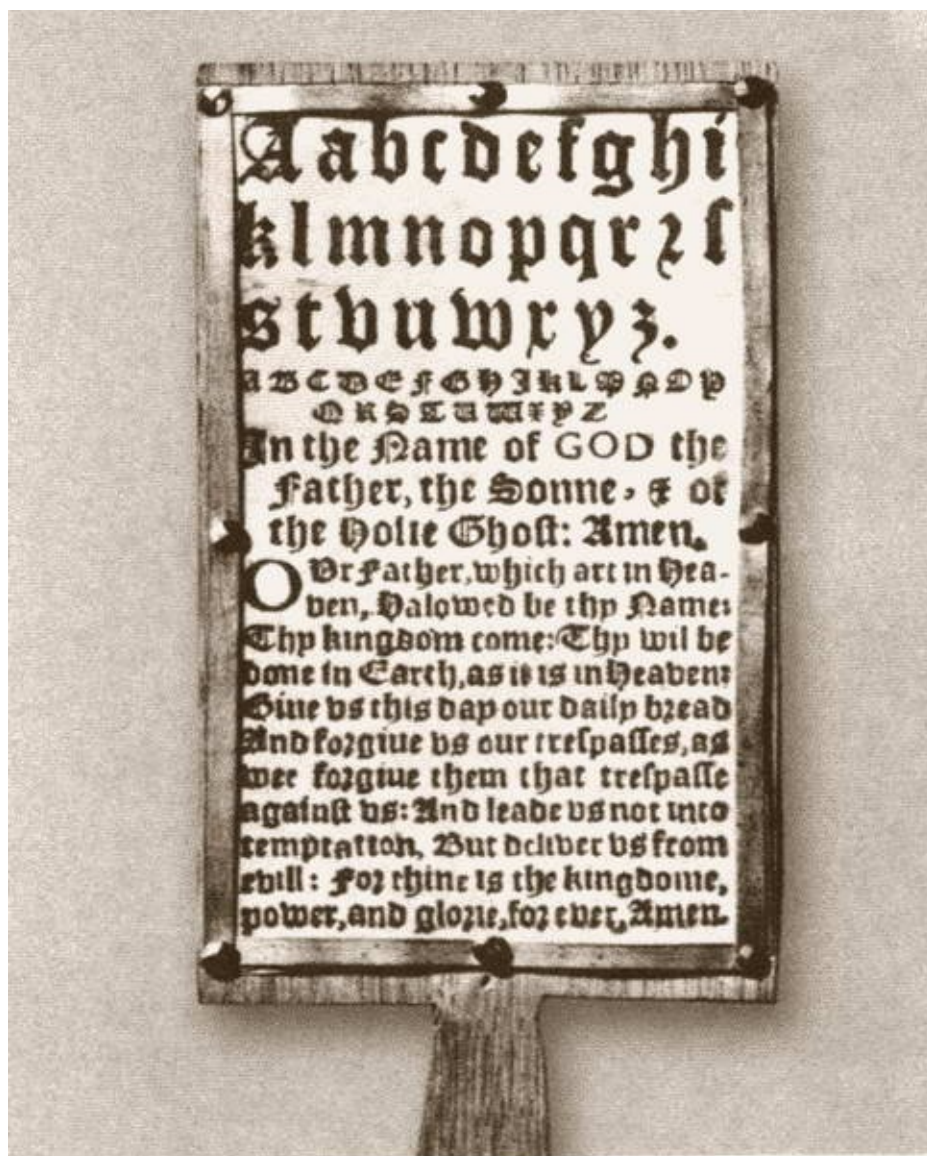 Aabcdefghi
klmnopqrꝛſ
stvuwxyz.
ABCDEFGHIKLMNOP
QRSTUWXYZ
In the Name of GOD the
Father, the Sonne, & of
the Holie Ghoſt: Amen.
OVr Father, which art in Hea-
ven, Halowed be thy Name:
Thy kingdom come: Thy wil be
done in Earth, as it is in Heaven:
Giue vs this day our daily bꝛead
And foꝛgiue vs our treſpaſſes, as
wee foꝛgiue them that treſpaſſe
againſt vs: And leade vs not into
temptation, But deliver vs from
evill: Foꝛ thine is the kingdome,
power, and gloꝛie, foꝛ ever, Amen.